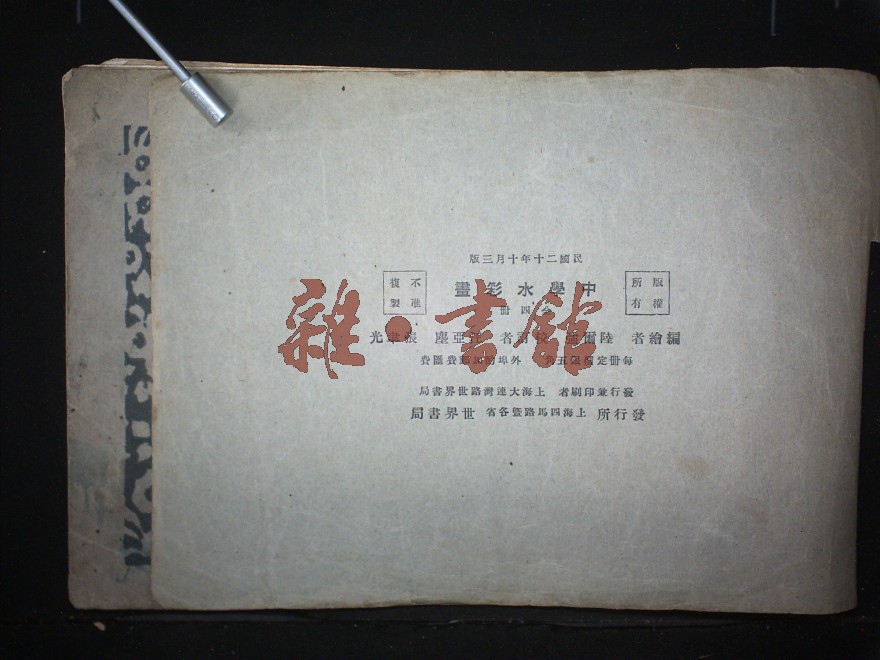 民國二十年十月三版
版權所有
中學水彩畫
不准複製
四冊
編繪者 陸爾 校訂者 亞塵 張聿光
每冊定價銀五角 外埠酌加郵費匯費
發行兼印刷者 上海大連灣路世界書局
發行所 上海四馬路暨各省 世界書局
雜·書館